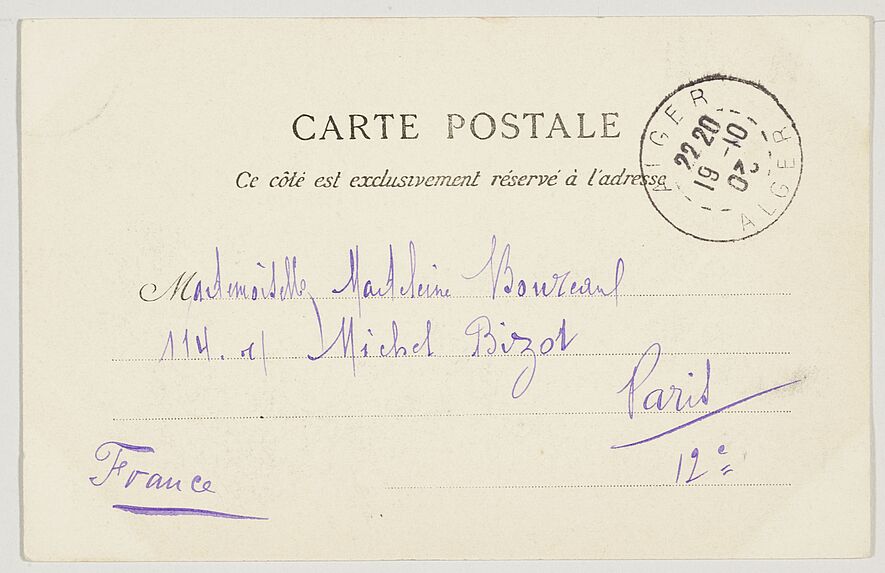 CARTE POSTALE
Ce côté est exclusivement réservé à l'adresse
ALGER
22 20
19 -10
0
ALGER
Mademoiselle Madeleine
114. r/ Michel Bizot
Paris
12e
France